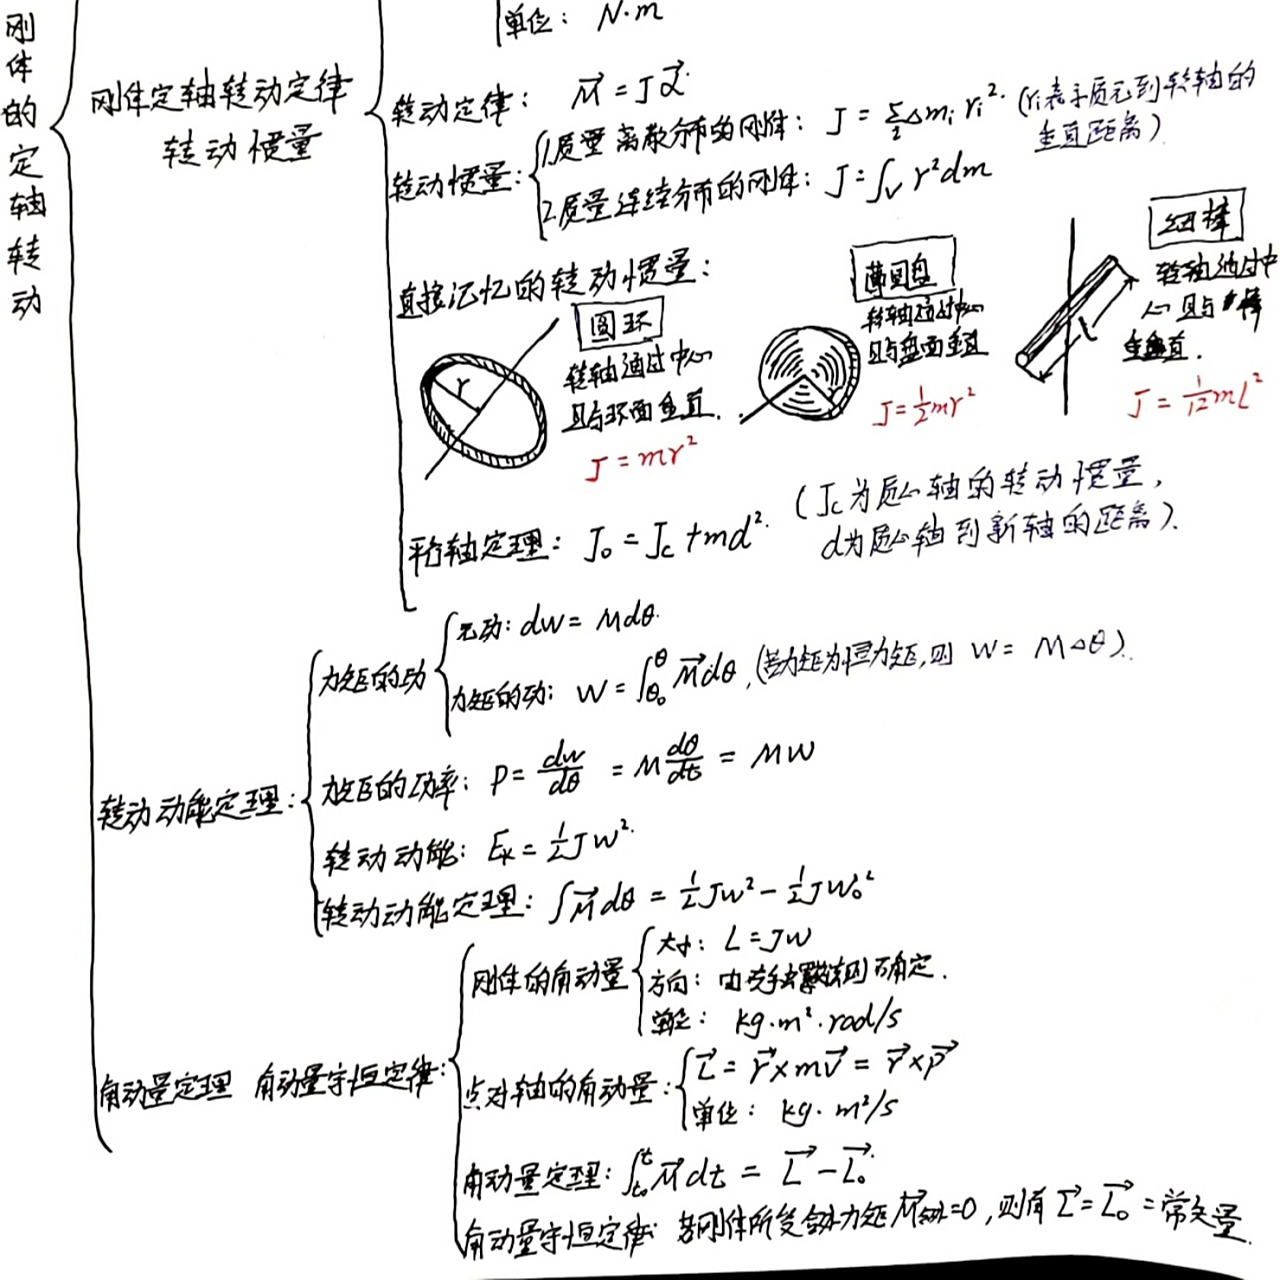 刚体的定轴转动
单位： N·m
刚体定轴转动定律
转动惯量
转动定律： M⃗ = Jα⃗
转动惯量：
1.质量离散分布的刚体： J = Σ Δmᵢ rᵢ². (rᵢ表示质元到转轴的
垂直距离)
2.质量连续分布的刚体： J=∫ᵥ r²dm
直接记忆的转动惯量：
圆环
转轴通过中心
且与环面垂直.
r
J = mr²
薄圆盘
转轴通过中心
且与盘面垂直
r
J=½mr²
细棒
转轴通过中
心且与棒
垂直.
l
J = 1/12 ml²
平行轴定理： J₀ = Jc + md². (Jc为质心轴的转动惯量，
d为质心轴到新轴的距离).
转动动能定理：
力矩的功
元功： dw = Mdθ.
力矩的功： W = ∫θ₀^θ M⃗dθ, (若力矩为恒力矩,则 W = MΔθ).
力矩的功率： P = dw/dθ = M dθ/dt = Mω
转动动能： Eₖ = ½Jω².
转动动能定理： ∫M⃗dθ = ½Jω² - ½Jω₀²
角动量定理 角动量守恒定律：
刚体的角动量
大小： L = Jω
方向： 由右手螺旋法则确定.
单位： kg·m²·rad/s
质点对轴的角动量：
L⃗ = r⃗×mv⃗ = r⃗×p⃗
单位： kg·m²/s
角动量定理： ∫t₀^t M⃗dt = L⃗ - L⃗₀.
角动量守恒定律： 若刚体所受合外力矩M⃗合外=0，则有 L⃗ = L⃗₀ = 常矢量.